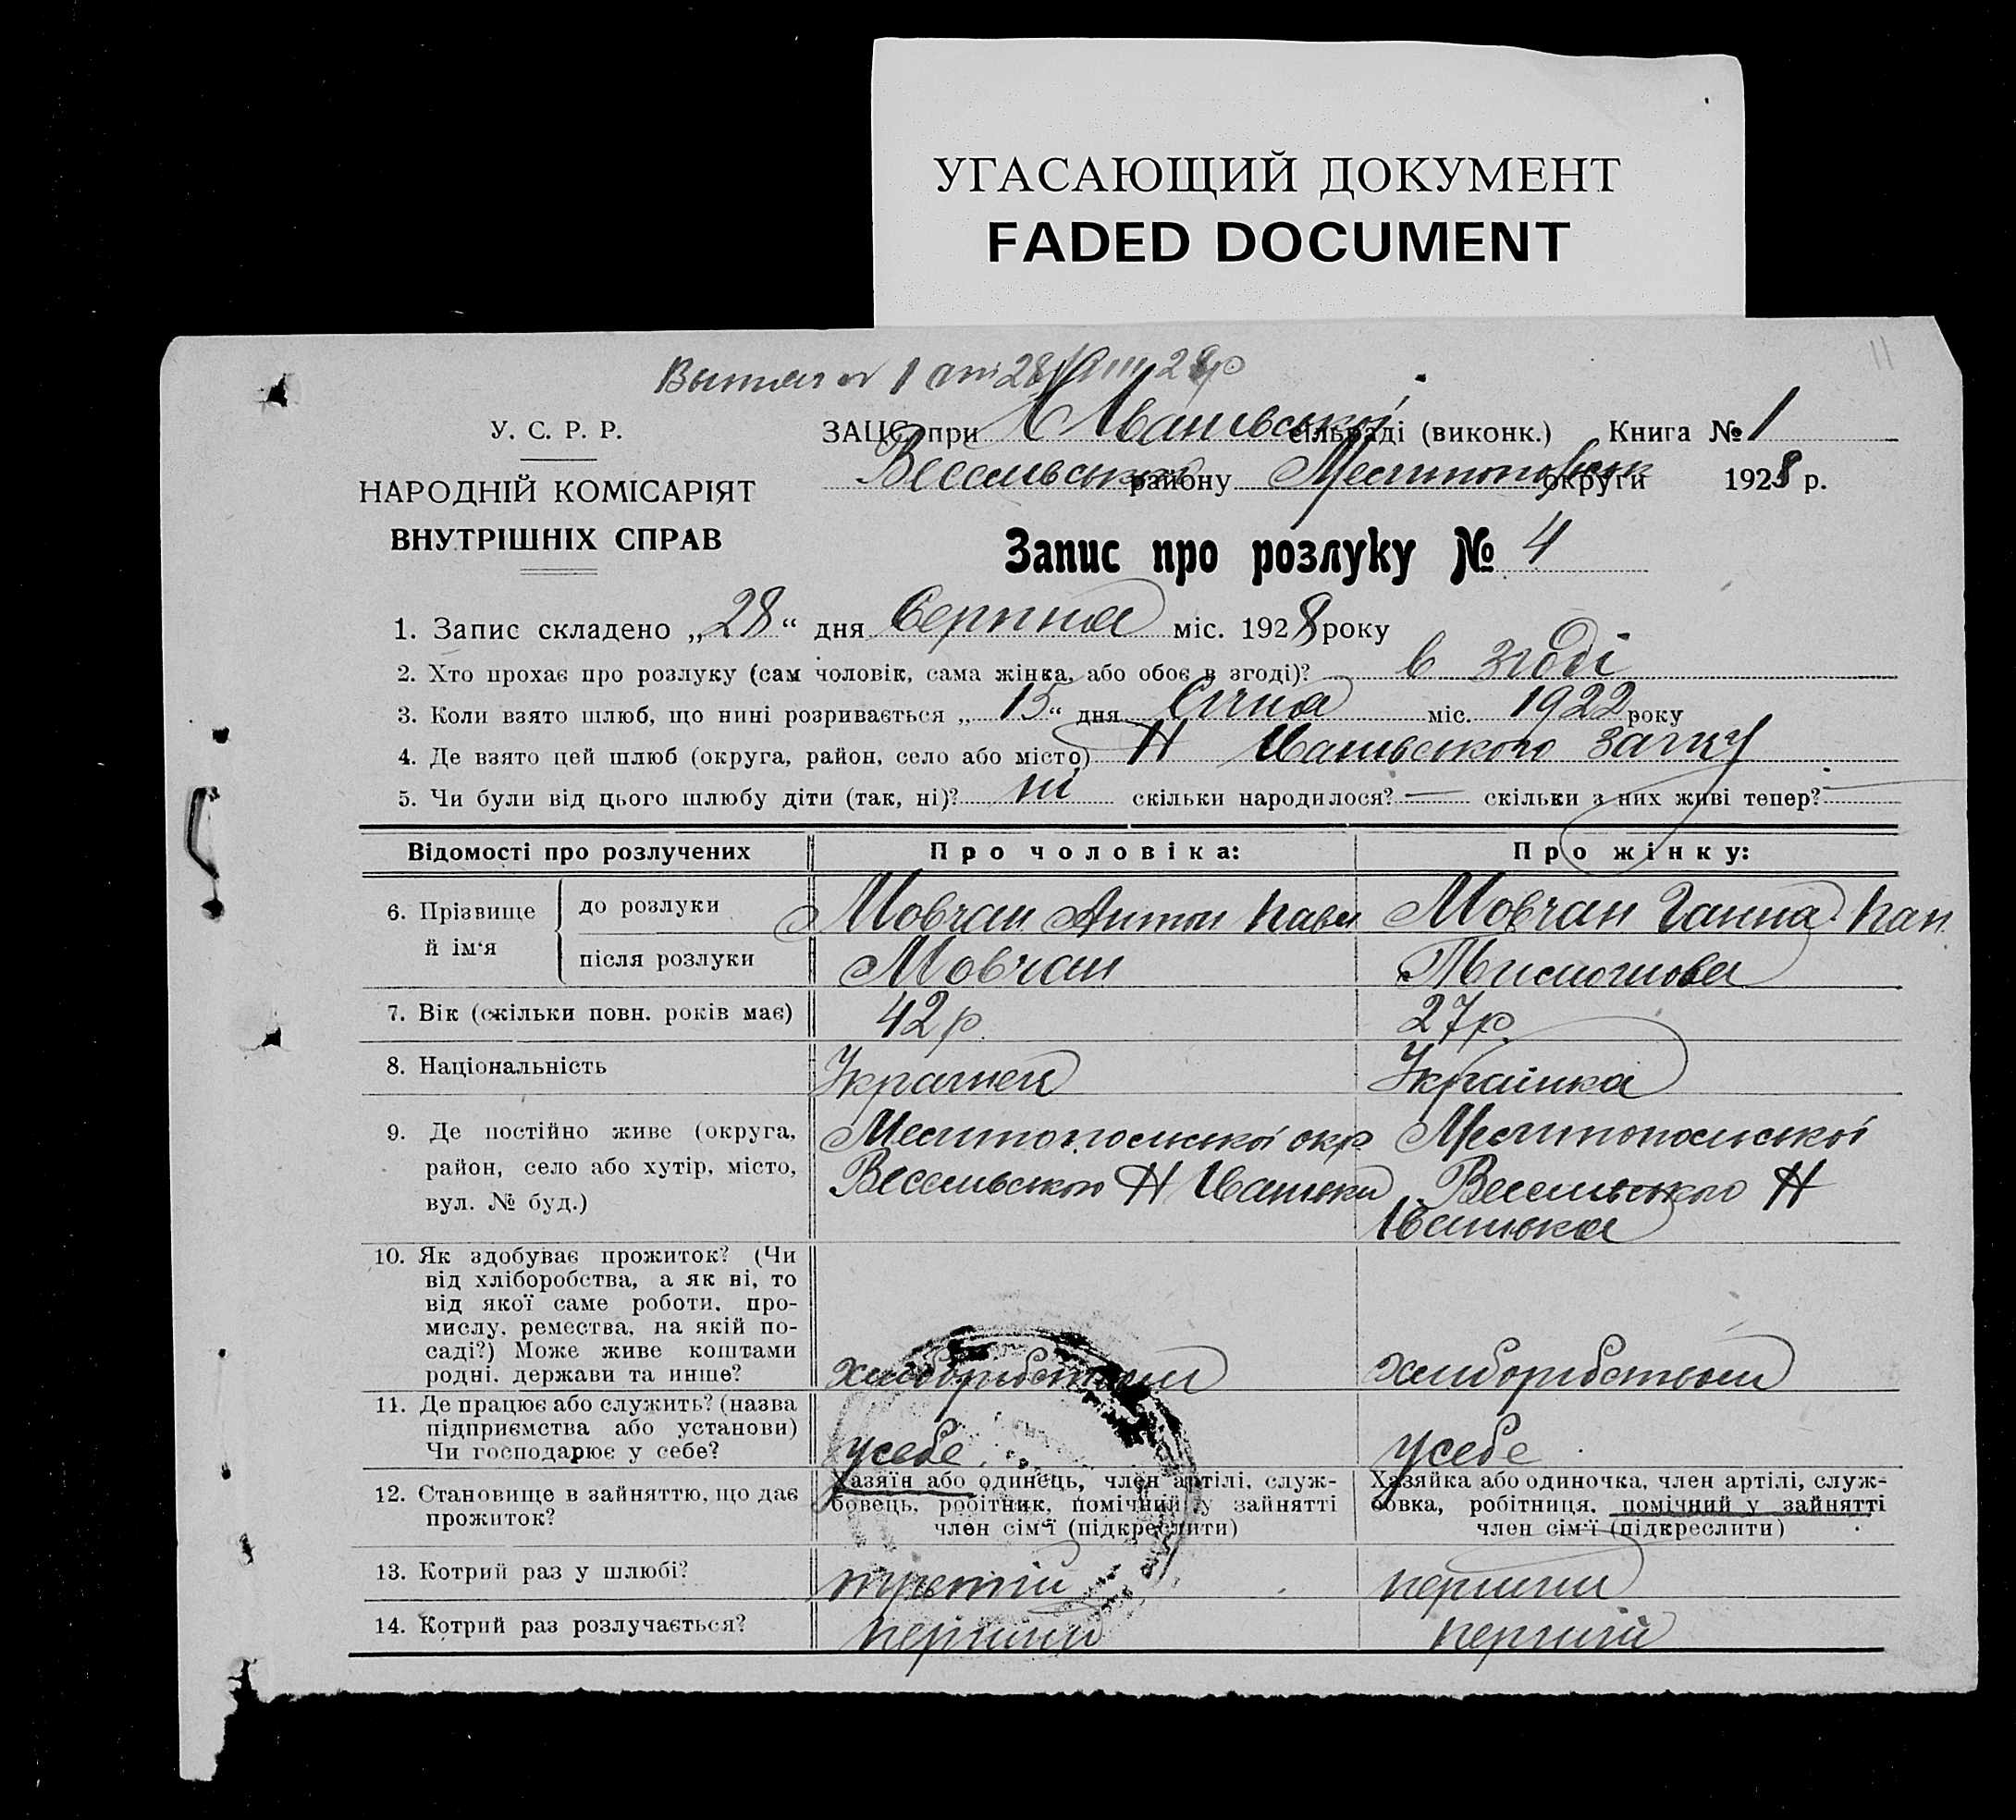 УГАСАЮЩИЙ ДОКУМЕНТ
FADED DOCUMENT
11
У. С. Р. Р.
НАРОДНІЙ КОМІСАРІЯТ
ВНУТРІШНІХ СПРАВ
ЗАЦС при сільраді (виконк.) Книга № 1
району округи 1928 р.
Запис про розлуку № 4
1. Запис складено „28“ дня Серпня міс. 1928 року
2. Хто прохає про розлуку (сам чоловік, сама жінка, або обоє в згоді)? в згоді
3. Коли взято шлюб, що нині розривається „15“ дня Січня міс. 1922 року
4. Де взято цей шлюб (округа, район, село або місто) Н
5. Чи були від цього шлюбу діти (так, ні)? ні скільки народилося? — скільки з них живі тепер? —
Відомості про розлучених
Про чоловіка:
Про жінку:
6. Прізвище й ім‘я
до розлуки
Мовчан Антон Павл
Мовчан Ганна Пан.
після розлуки
Мовчан
7. Вік (скільки повн. років має)
42 р.
27 р.
8. Національність
Українец
Українка
9. Де постійно живе (округа,
район, село або хутір, місто,
вул. № буд.)
Мелітопольської окр.
Веселівського Н Іванівки
Мелітопольської
Веселівського Н
Іванівка
10. Як здобуває прожиток? (Чи
від хліборобства, а як ні, то
від якої саме роботи, про-
мислу, ремества, на якій по-
саді?) Може живе коштами
родні, держави та инше?
хліборобством
хліборобством
11. Де працює або служить? (назва
підприємства або установи)
Чи господарює у себе?
у себе
у себе
12. Становище в зайняттю, що дає
прожиток?
Хазяїн або одинець, член артілі, служ-
бовець, робітник, помічний у зайнятті
член сім‘ї (підкреслити)
Хазяйка або одиночка, член артілі, служ-
бовка, робітниця, помічний у зайнятті
член сім‘ї (підкреслити)
13. Котрий раз у шлюбі?
третій
перший
14. Котрий раз розлучається?
перший
перший